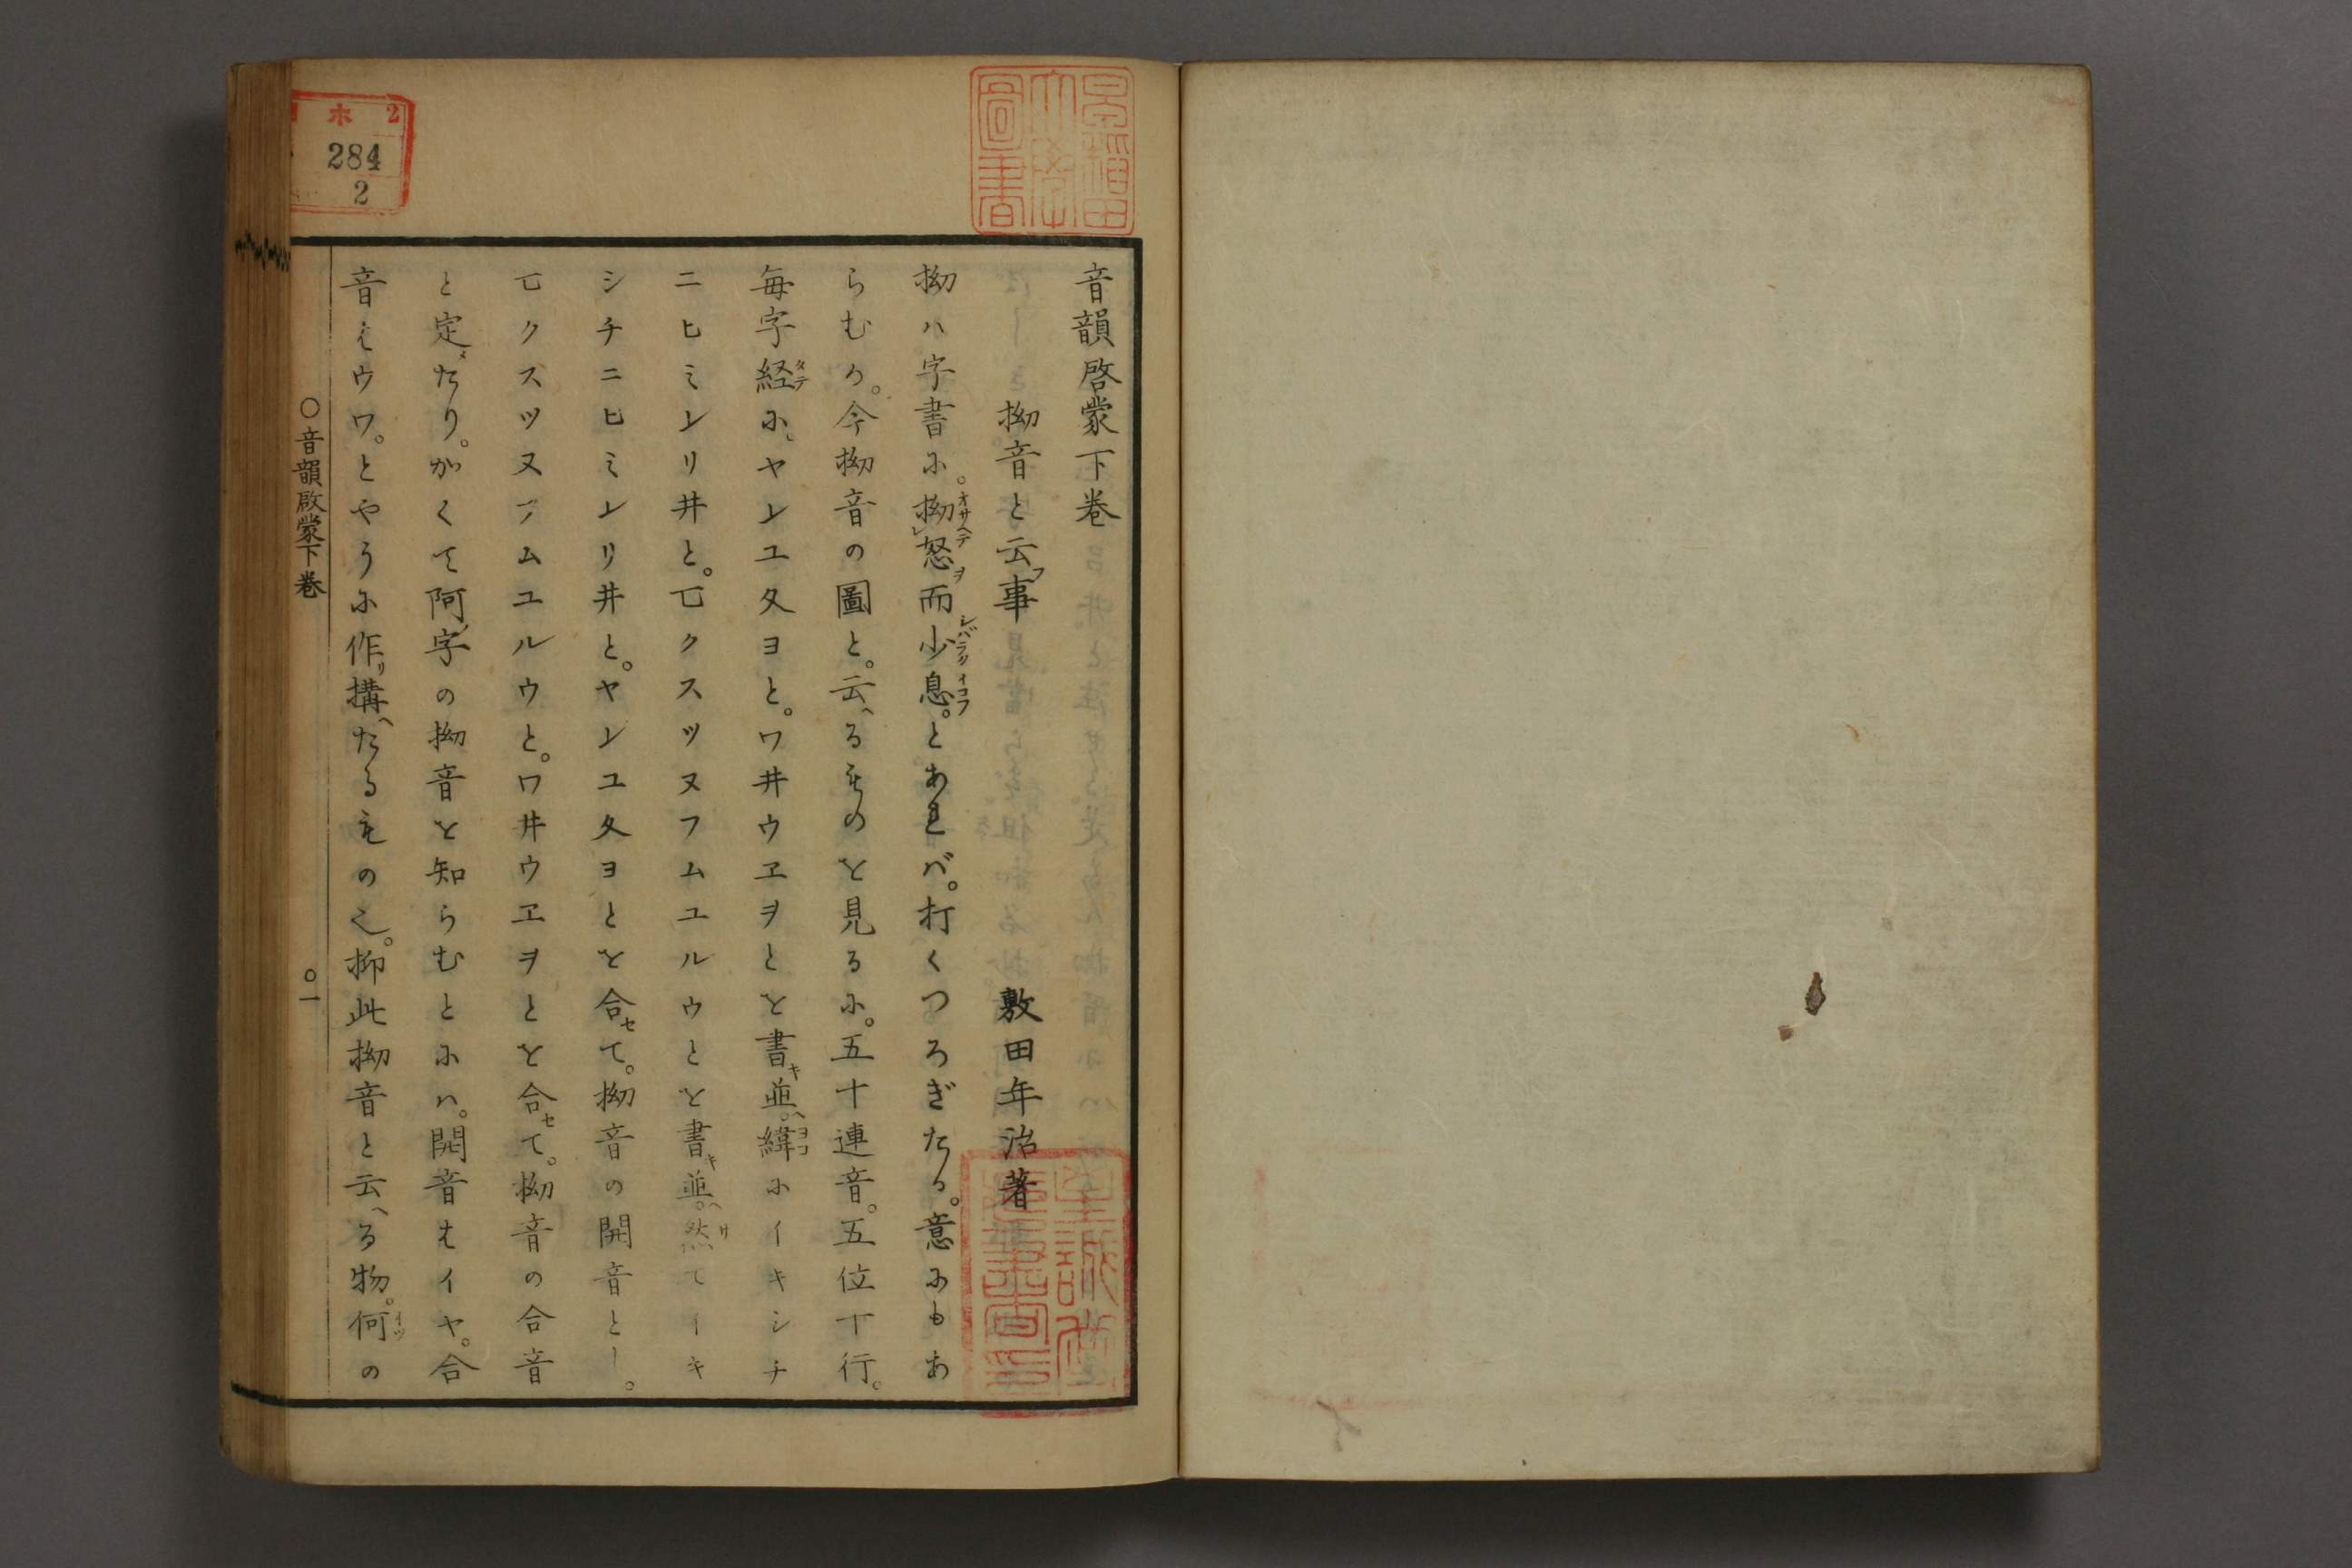 早稲田
大學
圖書
音韻啓蒙下巻
拗音と云フ事　敷田年治著
拗ハ字書に。拗オサヘテレ怒ヲ而少シバラク息イコフ。とあれバ。打くつろぎたる。意にもあ
らむか。今拗音の圖と。云ヘるものを見るに。五十連音。五位十行。
毎字経タテに。ヤ𛄠ユ夂ヨと。ワ井ウヱヲとを書キ並ヘ。緯ヨコにイキシチ
ニヒミ𛄠リ井と。亡クスツヌフムユルウとを書キ並ヘ。然リてイキ
シチニヒミ𛄠リ井と。ヤ𛄠ユ夂ヨとを合セて。拗音の開音とし。
亡クスツヌフムユルウと。ワ井ウヱヲとを合セて。拗音の合音
と定メたり。かくて阿ノ字の拗音を知らむとにハ。開音はイヤ。合
音はウワ。とやうに作リ構ヘたるもの也。抑此拗音と云ヘる物。何イツの
○音韻啟蒙下巻　○一
ホ 2
284
2